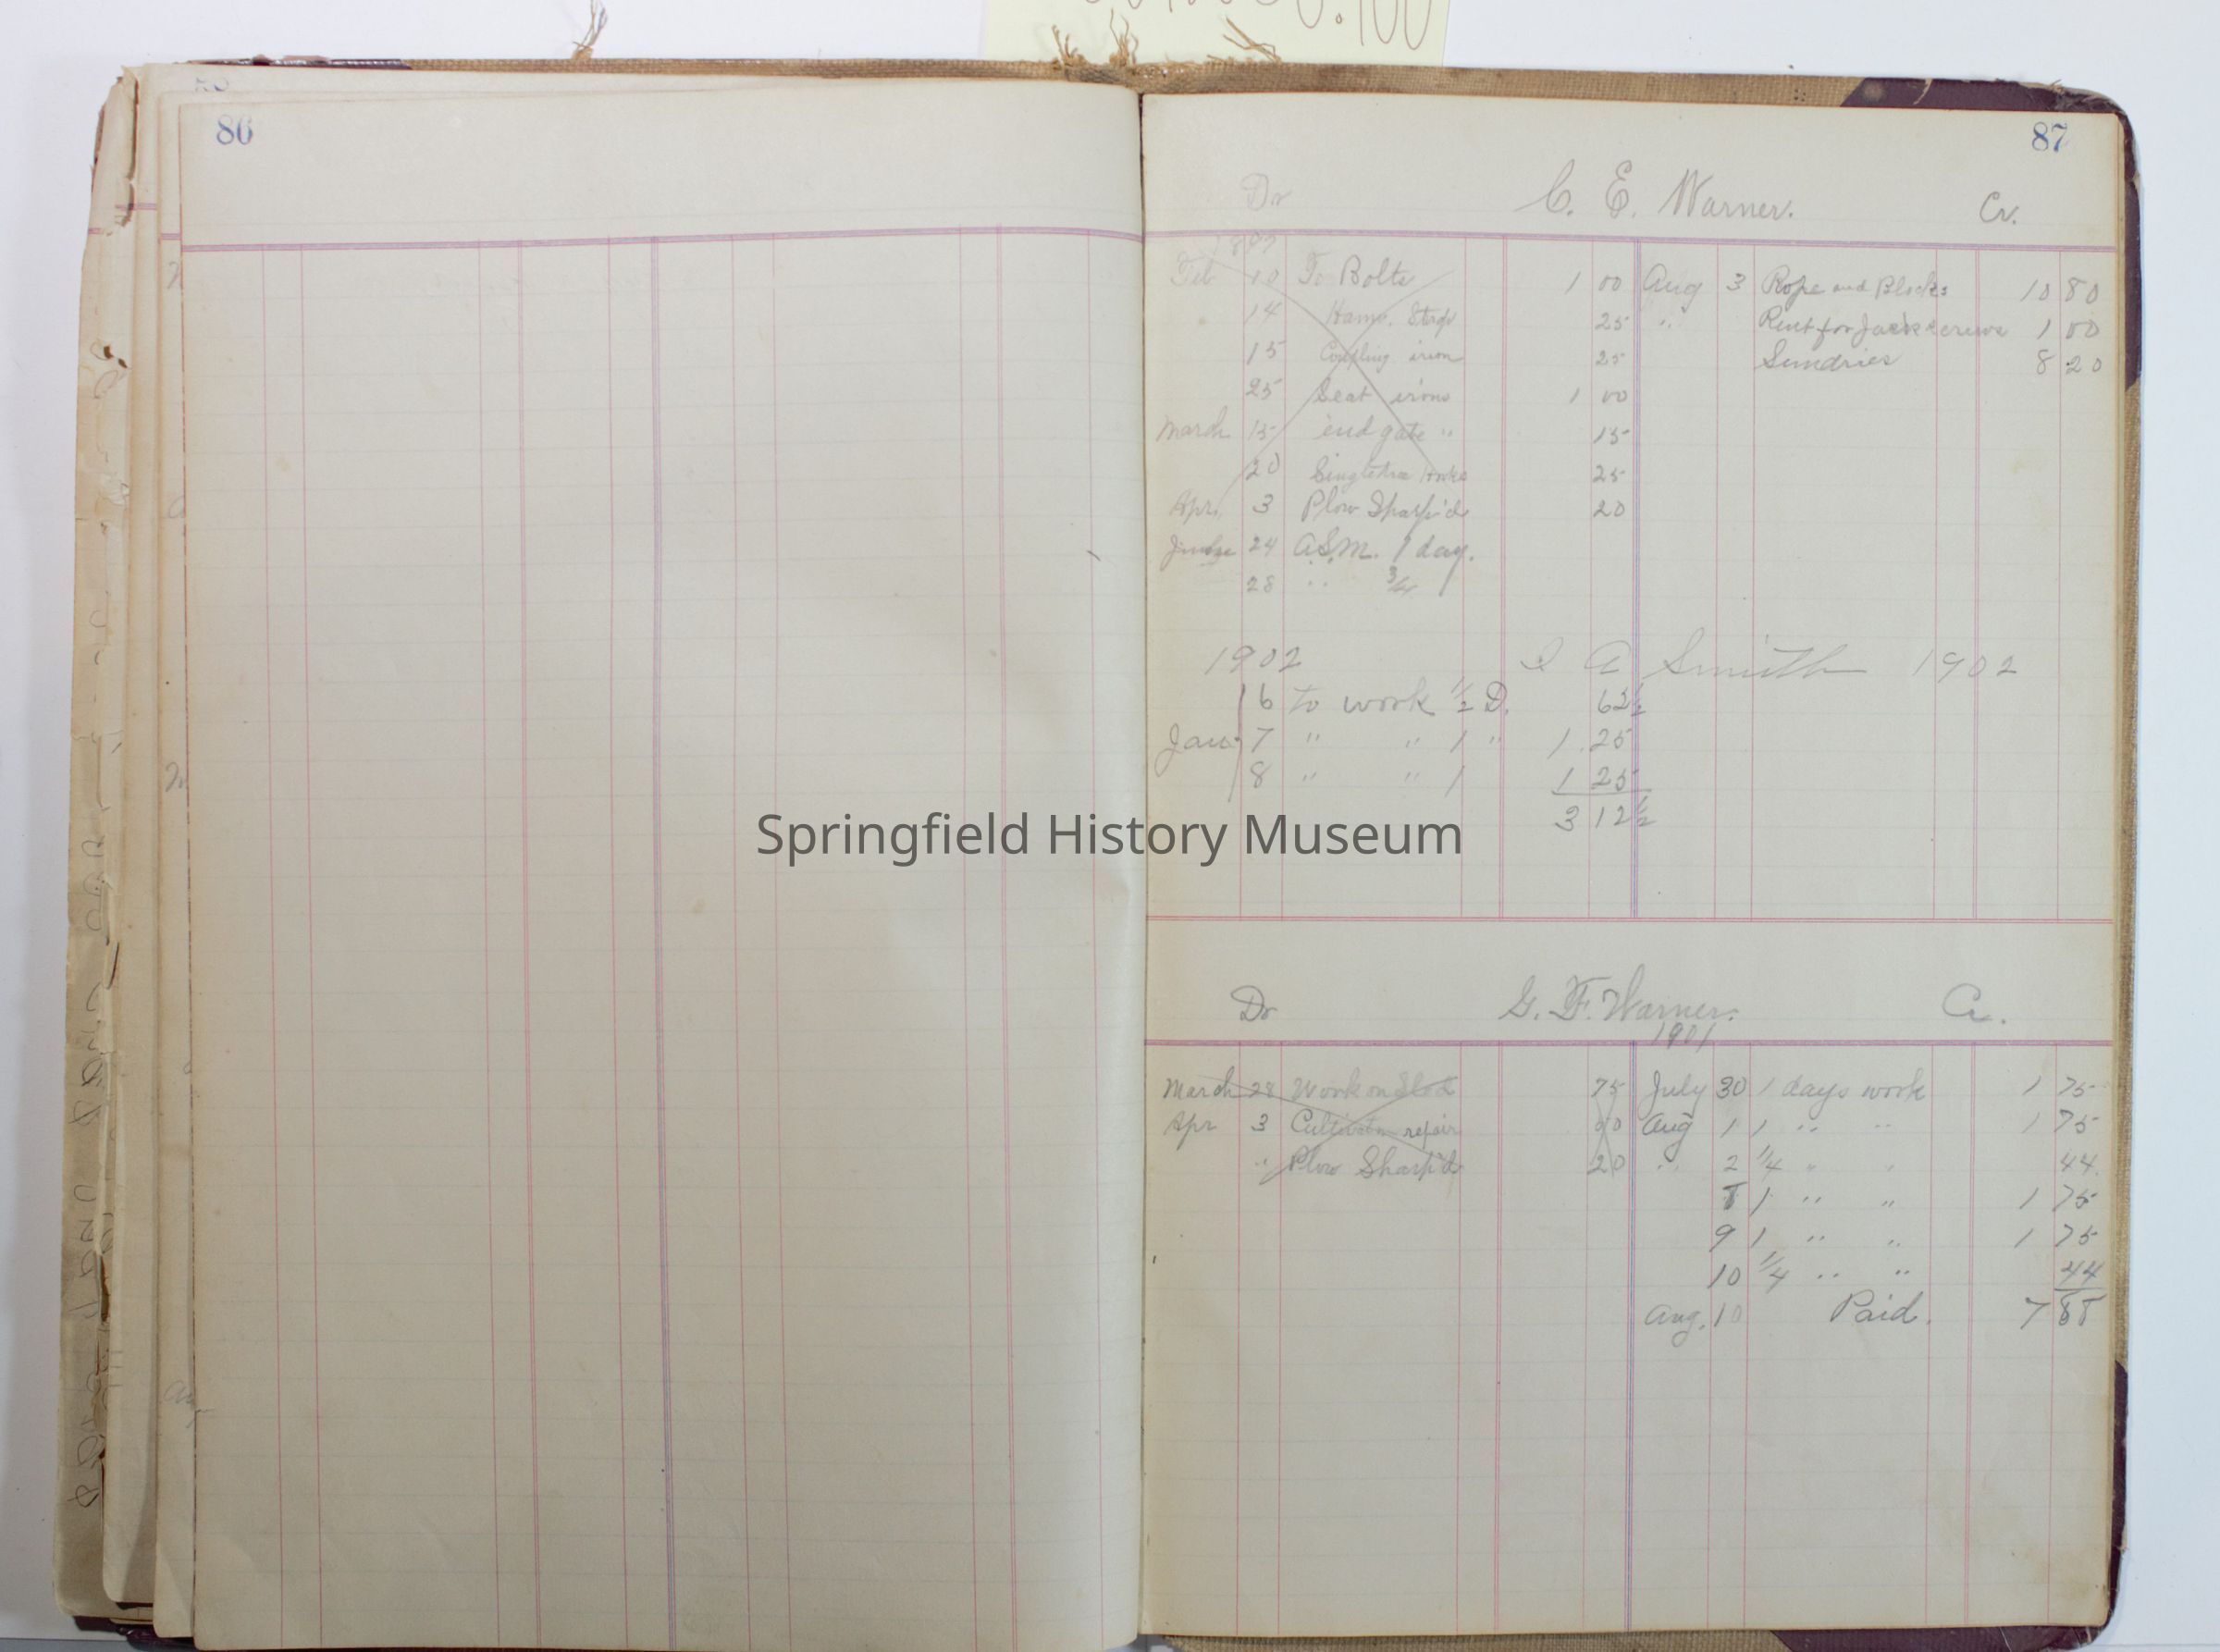 86
87
Dr C. E. Warner. Cr.
Feb 10 To Bolts 1 00 Aug 3 Rope and Blocks 10 80
14 Hame Stap 25 " Rent for Jackscrews 1 00
15 Coupling iron 25 Sundries 8 20
25 Seat irons 1 00
March 15 end gate " 15
20 Singletree hooks 25
Apr. 3 Plow Sharp'd 20
24 A.S.M. 1 day.
28 " 3/4
1902 A Smith 1902
6 to work 1/2 D. 62 1/2
Jan 7 " " 1 " 1.25
8 " " 1 1 25
3 12 1/2
Springfield History Museum
Dr G. F. Warner. Cr.
1901
March 28 Work on Sled 75 July 30 1 days work 1 75
Apr 3 Cultivator repair Aug 1 1 " " 1 75
" Plow Sharp'd 20 " 2 1/4 " " 44
8 1 " " 1 75
9 1 " " 1 75
10 1/4 " " 44
Aug. 10 Paid. 7 88